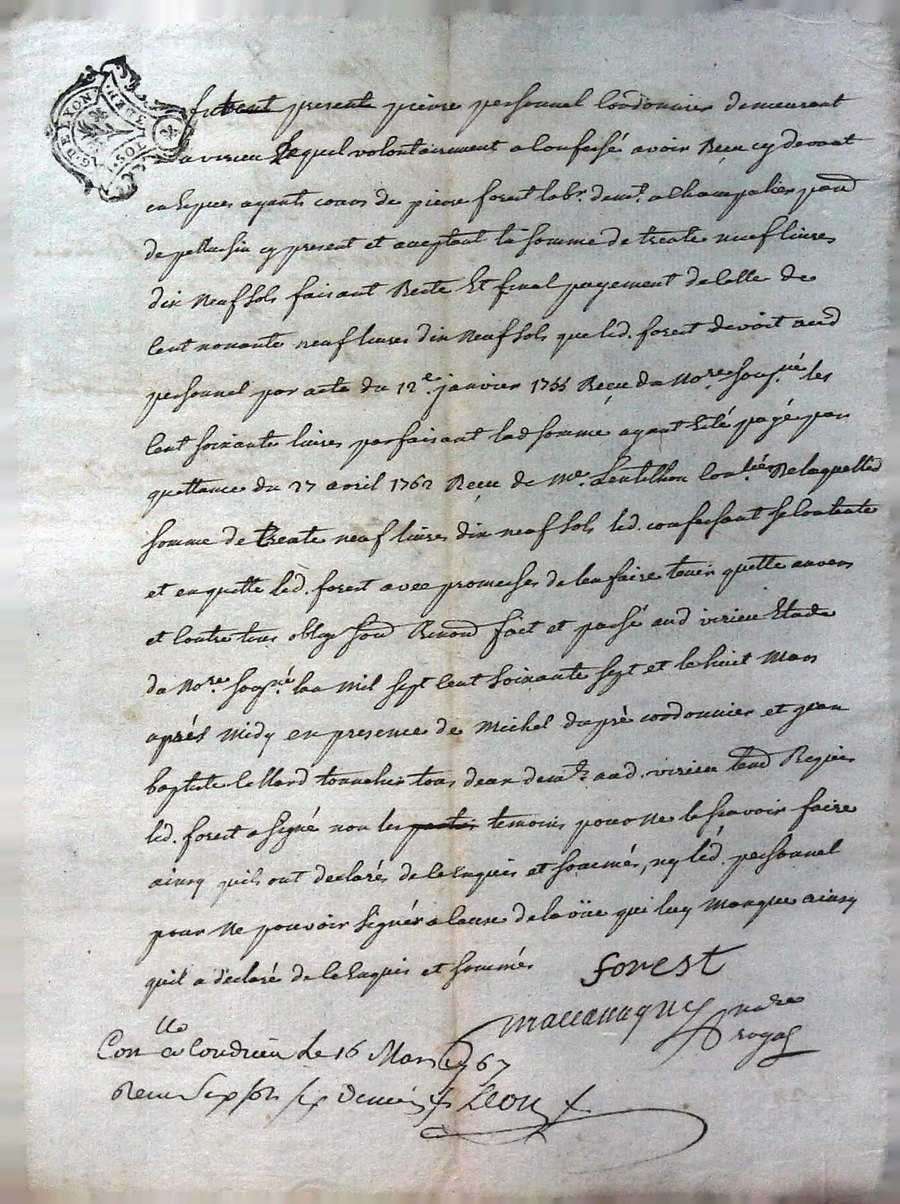 G. DE LYON
fut present pierre personnel cordonnier demeurant
a virieu Lequel volontairement a confessé avoir Receu cy devant
en Espèces ayants cours de pierre forest labr. demt. a Champalier parr
de pellussin cy present et acceptant la somme de trente neuf livres
dix Neuf sols faisant Reste Et final payement de celle de
Cent nonante neuf livres dix Neuf sols que led. forest devoit aud
personnel par acte du 12e. janvier 1755 Receu du Nore. sousgné les
Cent soixante livres parfaisant lad somme ayant Eté payé par
quittance du 27 avril 1762 Receu de Me. Lentilhon De laquelle
somme de trente neuf livres dix neuf sols led. confessant se contente
et en quitte led. forest avec promesses de l'en faire tenir quitte envers
et contre tous oblige soud Renond fait et passé aud virieu Etude
du Nore. sousgné l'an Mil sept Cent soixante sept et le huit Mars
après Midy en presence de Michel dupré cordonnier et jean
baptiste tous deux demts. aud. virieu Requis
led. forest a signé non les parties temoins pour ne le sçavoir faire
ainsy quils ont declarés de ce Enquis et sommés, ny led. personnel
pour ne pouvoir signer a cause de la vüe qui luy Manque ainsy
quil a declaré de ce Enquis et sommés
forest
nore
royal
Conllé a Condrieu le 16 Mars 1767
Receu six sols six Deniers Leon